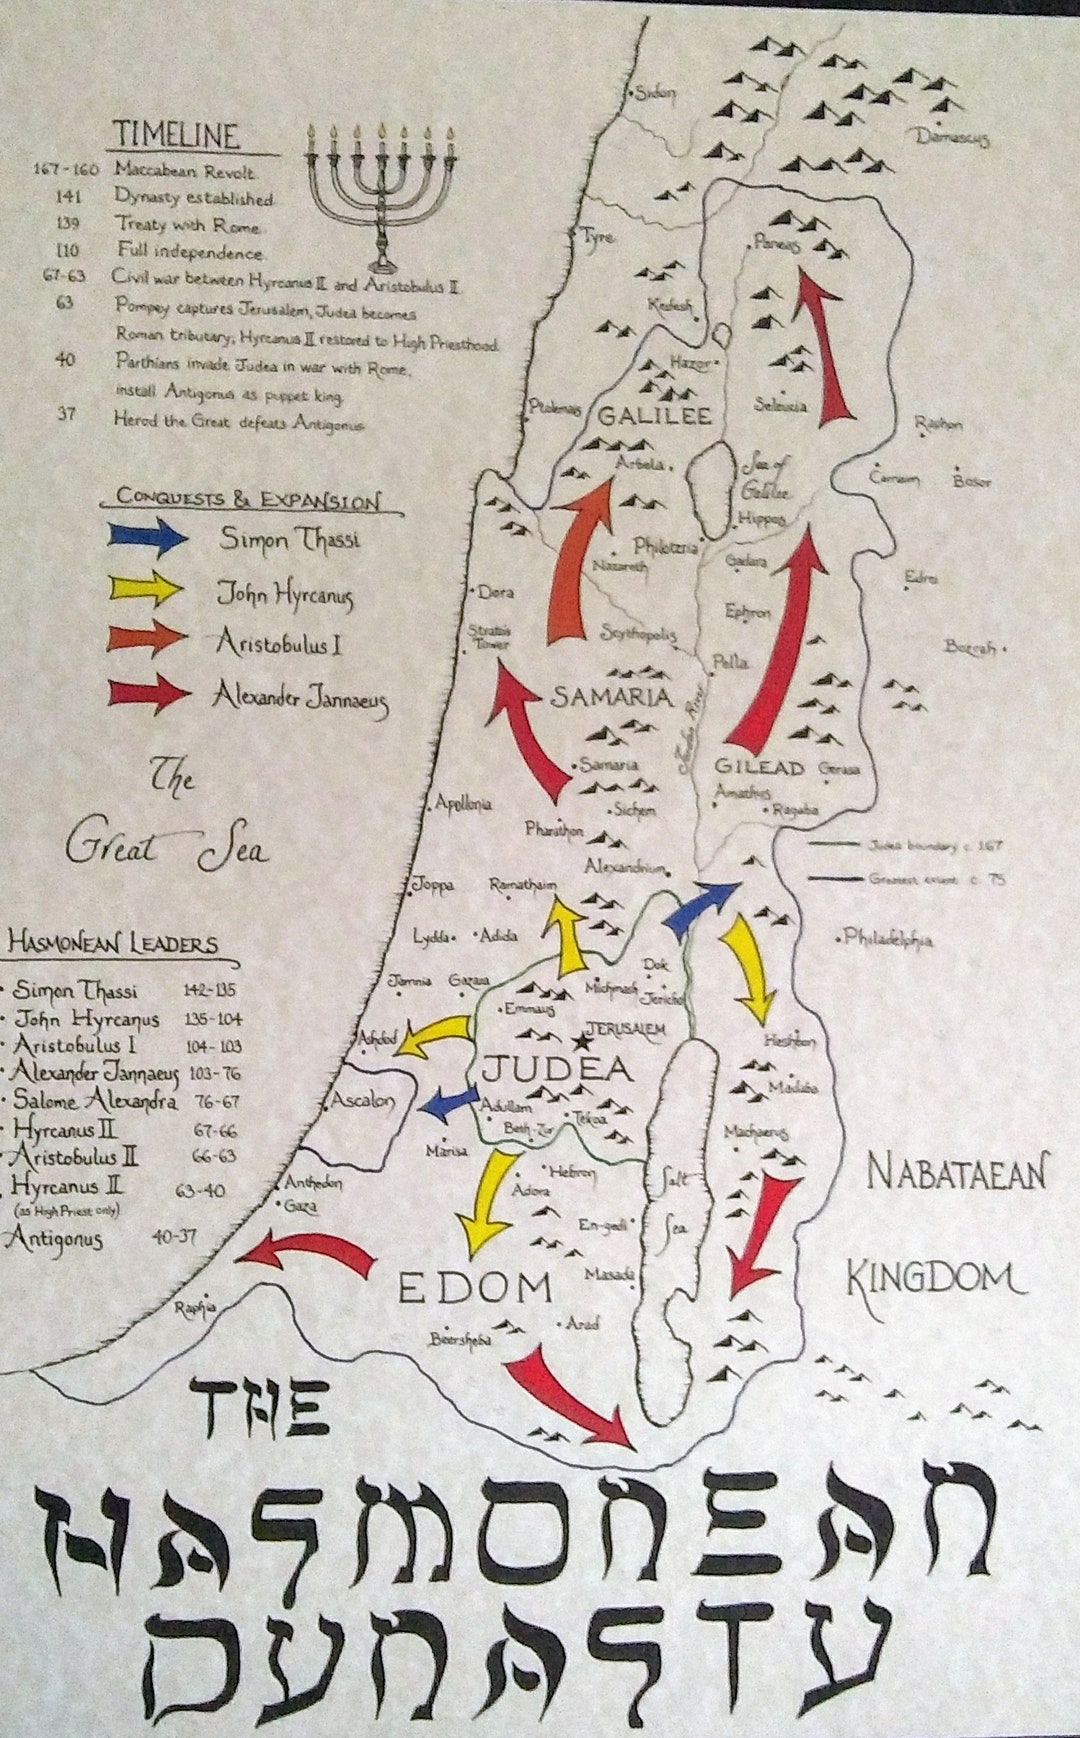 TIMELINE
167-160 Maccabean Revolt.
141 Dynasty established.
139 Treaty with Rome.
110 Full independence.
67-63 Civil war between Hyrcanus II and Aristobulus II.
63 Pompey captures Jerusalem, Judea becomes
Roman tributary; Hyrcanus II restored to High Priesthood.
40 Parthians invade Judea in war with Rome,
install Antigonus as puppet king.
37 Herod the Great defeats Antigonus
CONQUESTS & EXPANSION
Simon Thassi
John Hyrcanus
Aristobulus I
Alexander Jannaeus
The
Great Sea
HASMONEAN LEADERS
• Simon Thassi 142-135
• John Hyrcanus 135-104
• Aristobulus I 104-103
• Alexander Jannaeus 103-76
• Salome Alexandra 76-67
• Hyrcanus II 67-66
• Aristobulus II 66-63
• Hyrcanus II 63-40
(as High Priest only)
Antigonus 40-37
Sidon
Damascus
Tyre
Paneas
Kedesh
Hazor
Seleucia
Ptolemais
GALILEE
Raphon
Arbela
Sea of
Galilee
Carnaim
Bosor
Hippos
Philoteria
Nazareth
Gadara
Edrei
Dora
Ephron
Strato's
Tower
Scythopolis
Bozrah
Pella
SAMARIA
Jordan River
Samaria
GILEAD
Gerasa
Amathus
Ragaba
Apollonia
Sichem
Pharathon
Judea boundary c. 167
Alexandrium
Greatest extent c. 75
Joppa
Ramathaim
Lydda
Adida
Philadelphia
Dok
Jamnia
Gazara
Michmash
Jericho
Emmaus
JERUSALEM
Ashdod
Heshbon
JUDEA
Madaba
Ascalon
Adullam
Beth-Zur
Tekoa
Machaerus
Marisa
Hebron
Salt
Sea
NABATAEAN
KINGDOM
Anthedon
Adora
Gaza
En-gedi
EDOM
Masada
Raphia
Beersheba
Arad
THE
HASMONEAN
DYNASTY